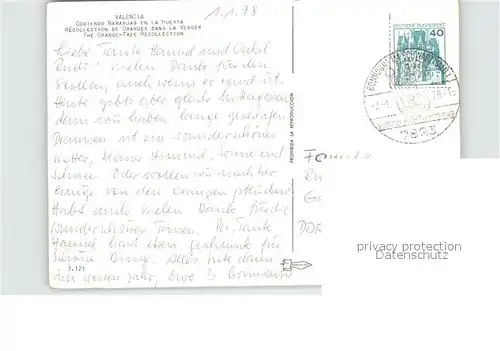 VALENCIA
COGIENDO NARANJAS EN LA HUERTA
RÉCOLLECTION DE ORANGES DANS LA VERGER
THE ORANGE-TREE RECOLLECTION
1.1.78
Liebe Tante Hannel und Onkel
Rudi! Vielen Dank für den
Stollen, auch wenn er rund ist.
Heute gibts aber gleich Mittagessen
denn wir haben lange geschlafen
Draussen ist ein wunderschönes
Wetter, blauer Himmel, Sonne und
Schnee. Oder sollen wir noch
einige von den Orangen pflücken?
Habt auch vielen Dank für die
wunderschönen Tassen. Die Tante
Hannel hast eben Geschmack für
schöne Dinge. Alles Gute dann
im neuen Jahr, Eure 3
3.121
PROHIBIDA LA REPRODUCCION
DEUTSCHE BUNDESPOST
40
BONNDORF IM SCHWARZWALD
-2.-1. 78-15
7823
Familie
DDR
privacy protection
Datenschutz